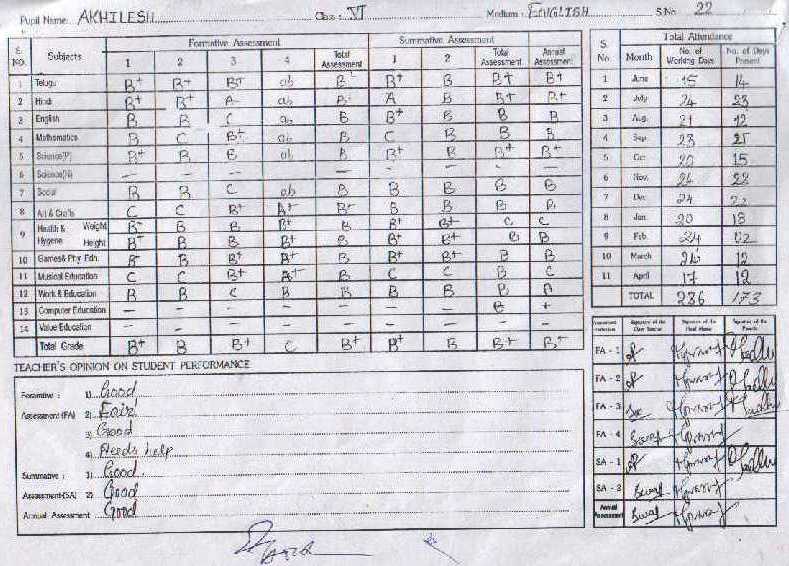 Pupil Name: AKHILESH Class: VI Medium: ENGLISH S.No. 22
S. NO. Subjects Formative Assessment Summative Assessment
1 2 3 4 Total Assessment 1 2 Total Assessment Annual Assessment
1 Telugu B+ B+ B+ ab B B+ B B+ B+
2 Hindi B+ B+ A ab B+ A B B+ B+
3 English B B C ab B B+ B B B
4 Mathematics B C B+ ab B C B B B
5 Science(P) B+ B B ab B B+ B B+ B+
6 Science(N) – – – – – – – – –
7 Social B B C ab B B B B B
8 Art & Crafts C C B+ A+ B+ B B B B
9 Health & Hygiene Weight B+ B B B+ B B+ B+ C C
Height B+ B B B+ B B+ B+ B B
10 Games& Phy. Edn. B B B+ A+ B+ B+ B+ B B
11 Musical Education C C B+ A+ B C C B C
12 Work & Education B B C B B B B B
13 Computer Education – – – – – – – B +
14 Value Education – – – – – – – – –
Total Grade B+ B B+ C B+ B+ B B+ B+
S. No. Total Attendance
Month No. of Working Days No. of Days Present
1 June 15 14
2 July 24 23
3 Aug. 21 12
4 Sep. 23 21
5 Oct. 20 15
6 Nov. 22
7 Dec 24 22
8 Jan. 20 18
9 Feb. 24 02
10 March 26 12
11 April 17 12
TOTAL 236 173
Signature of the Class Teacher Signature of the Head Master Signature of the Parents
FA - 1
FA - 2
FA - 3
FA - 4
SA - 1
SA - 3
Annual Assessment
TEACHER'S OPINION ON STUDENT PERFORMANCE
Formative : 1) Good
Assessment (FA) 2) Fair
3) Good
4) Needs help
Summative : 1) Good.
Assessment(SA) 2) Good
Annual Assessment Good